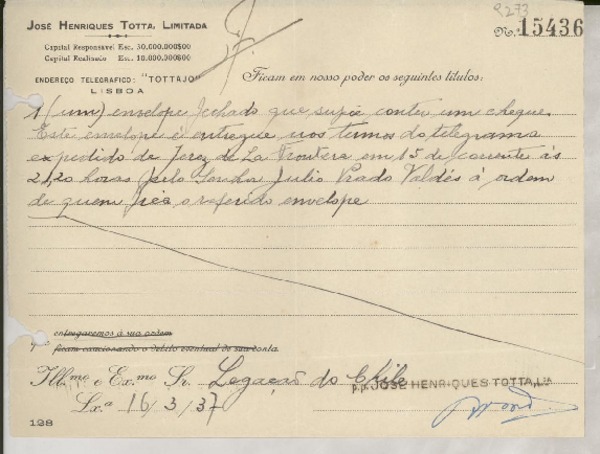 R273
JOSÉ HENRIQUES TOTTA, LIMITADA
Nº 15436
Capital Responsavel Esc. 30.000.000$00
Capital Realizado Esc. 10.000.000$00
ENDEREÇO TELEGRAFICO: "TOTTAJO"
LISBOA
Ficam em nosso poder os seguintes titulos:
1 (um) envelope fechado que supõe conter um cheque.
Este envelope é entregue nos termos do telegrama
expedido de Jerez de La Frontera em 15 de corrente ás
21,20 horas pelo Senhor Julio Prado Valdés á ordem
de quem fica o referido envelope
entregaremos á sua ordem
que
ficam caucionando o debito eventual de sua conta.
Ill.mo e Ex.mo Sr. Legação do Chile
p.p. JOSÉ HENRIQUES TOTTA, Lda
Lx.a 16/3/37
128